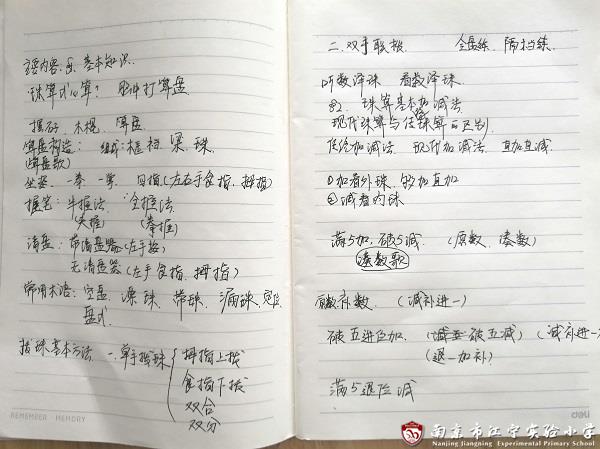 主要内容: 基本知识.
珠算式心算? 用
打算盘
摆石子、木棍、算盘
算盘构造: 组成:框 档 梁 珠.
(算盘歌)
坐姿 一拳 一 四指(左右手食指、拇指)
握笔: 半握法、全握法.
(夹握) (拳握)
清盘: 带清盘器(左手按)
无清盘器(左手食指、拇指)
常用术语: 空盘 漂珠、带珠、漏珠、
盘式.
拨珠基本方法 一.单手拨珠
拇指上拨
食指下拨
双合
双分
REMEMBER · MEMORY
二.双手联拨 全盘练、隔档练.
听数译珠 看数译珠.
珠算基本加减法
现代珠算与传统珠算的区别.
传统加减法 现代加减法 直加直减.
①加看外珠,够加直加
②减看内珠
满5加,破5减 (原数、凑数)
凑数歌
补数. (减补进一)
破五进位加. (减 破五减) (减补进一
(退一加补)
满5退位减
deli
南京市江宁实验小学
Nanjing Jiangning Experimental Primary School